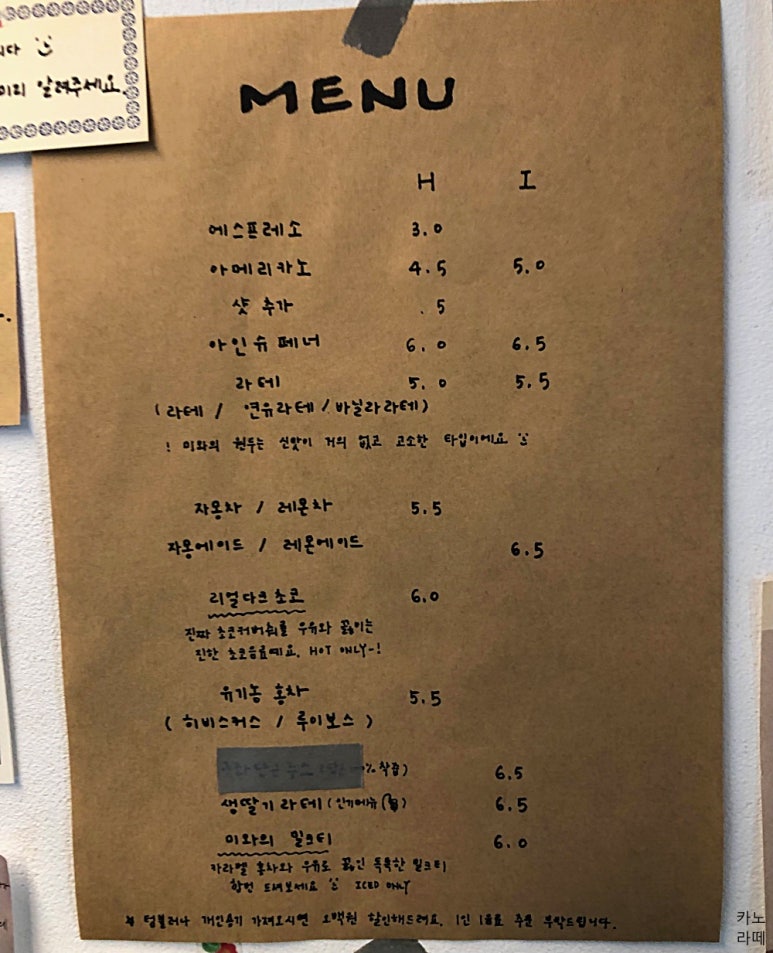 이리 알려주세요.
MENU
H I
에스프레소 3.0
아메리카노 4.5 5.0
샷 추가 .5
아인슈페너 6.0 6.5
라떼 5.0 5.5
(라떼 / 연유라떼 / 바닐라라떼)
! 미와의 원두는 신맛이 거의 없고 고소한 타입이에요
자몽차 / 레몬차 5.5
자몽에이드 / 레몬에이드 6.5
리얼다크초코 6.0
진짜 초코커버춰를 우유와 끓이는
진한 초코음료예요. HOT ONLY~!
유기농 홍차 5.5
( 히비스커스 / 루이보스 )
% 착즙) 6.5
생딸기라떼 (인기메뉴) 6.5
미와의 밀크티 6.0
카라멜 홍차와 우유로 끓인 톡톡한 밀크티
한번 드셔보세요 ICED ONLY
* 텀블러나 개인용기 가져오시면 오백원 할인해드려요. 1인 1음료 주문 부탁드립니다.
카노
라떼